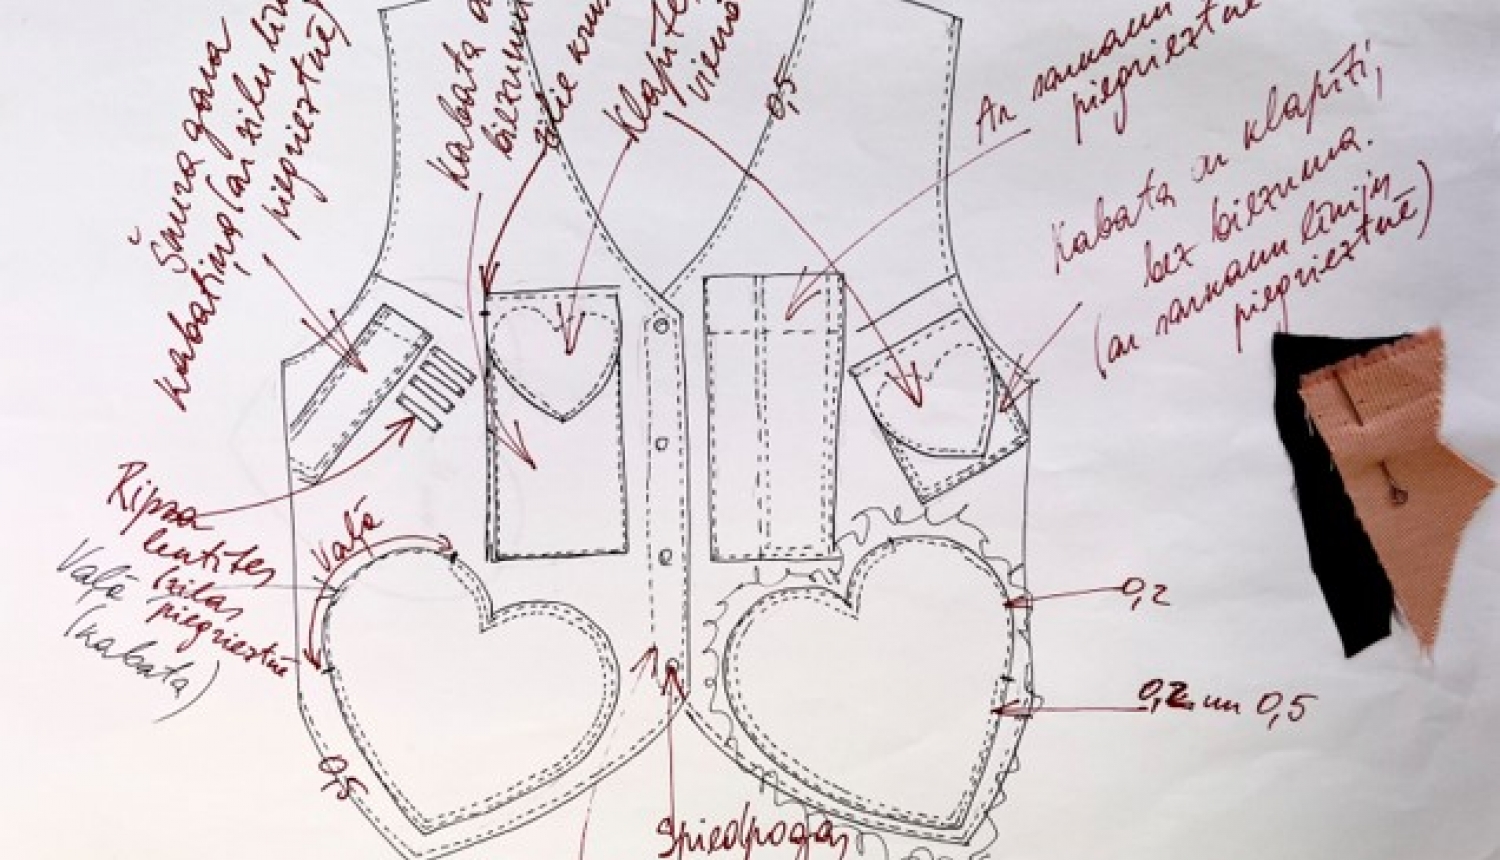 Šaura gara
kabatiņa (ar zilu
piegrieztnē)
Kabata
biezumu
zilie
Klapīte,
viena
0,5
Ar sarkanu
piegrieztne
Kabata ar klapīti,
bez biezuma.
(ar sarkanu līniju
piegrieztnē)
Ripsa
lentītes
(zilas
piegrieztnē
Vaļā
(kabata)
Vaļā
0,2
0,2 un 0,5
0,5
Spiedpogas